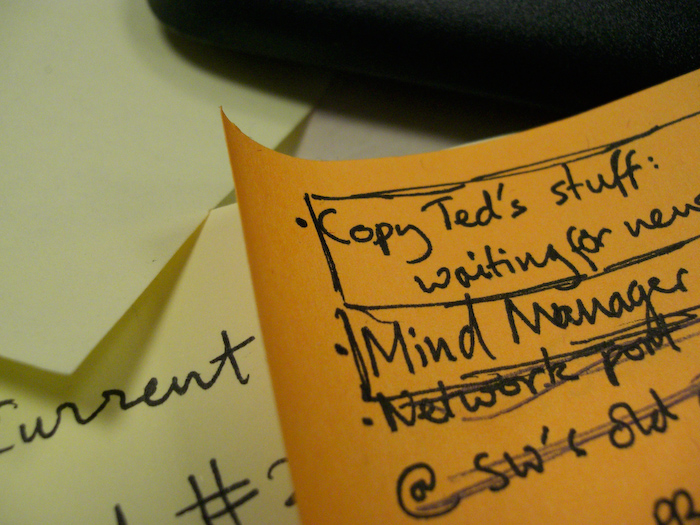 • Copy Ted's stuff:
waiting for news
• Mind Manager
• Network port
@ SW's old
Current
#